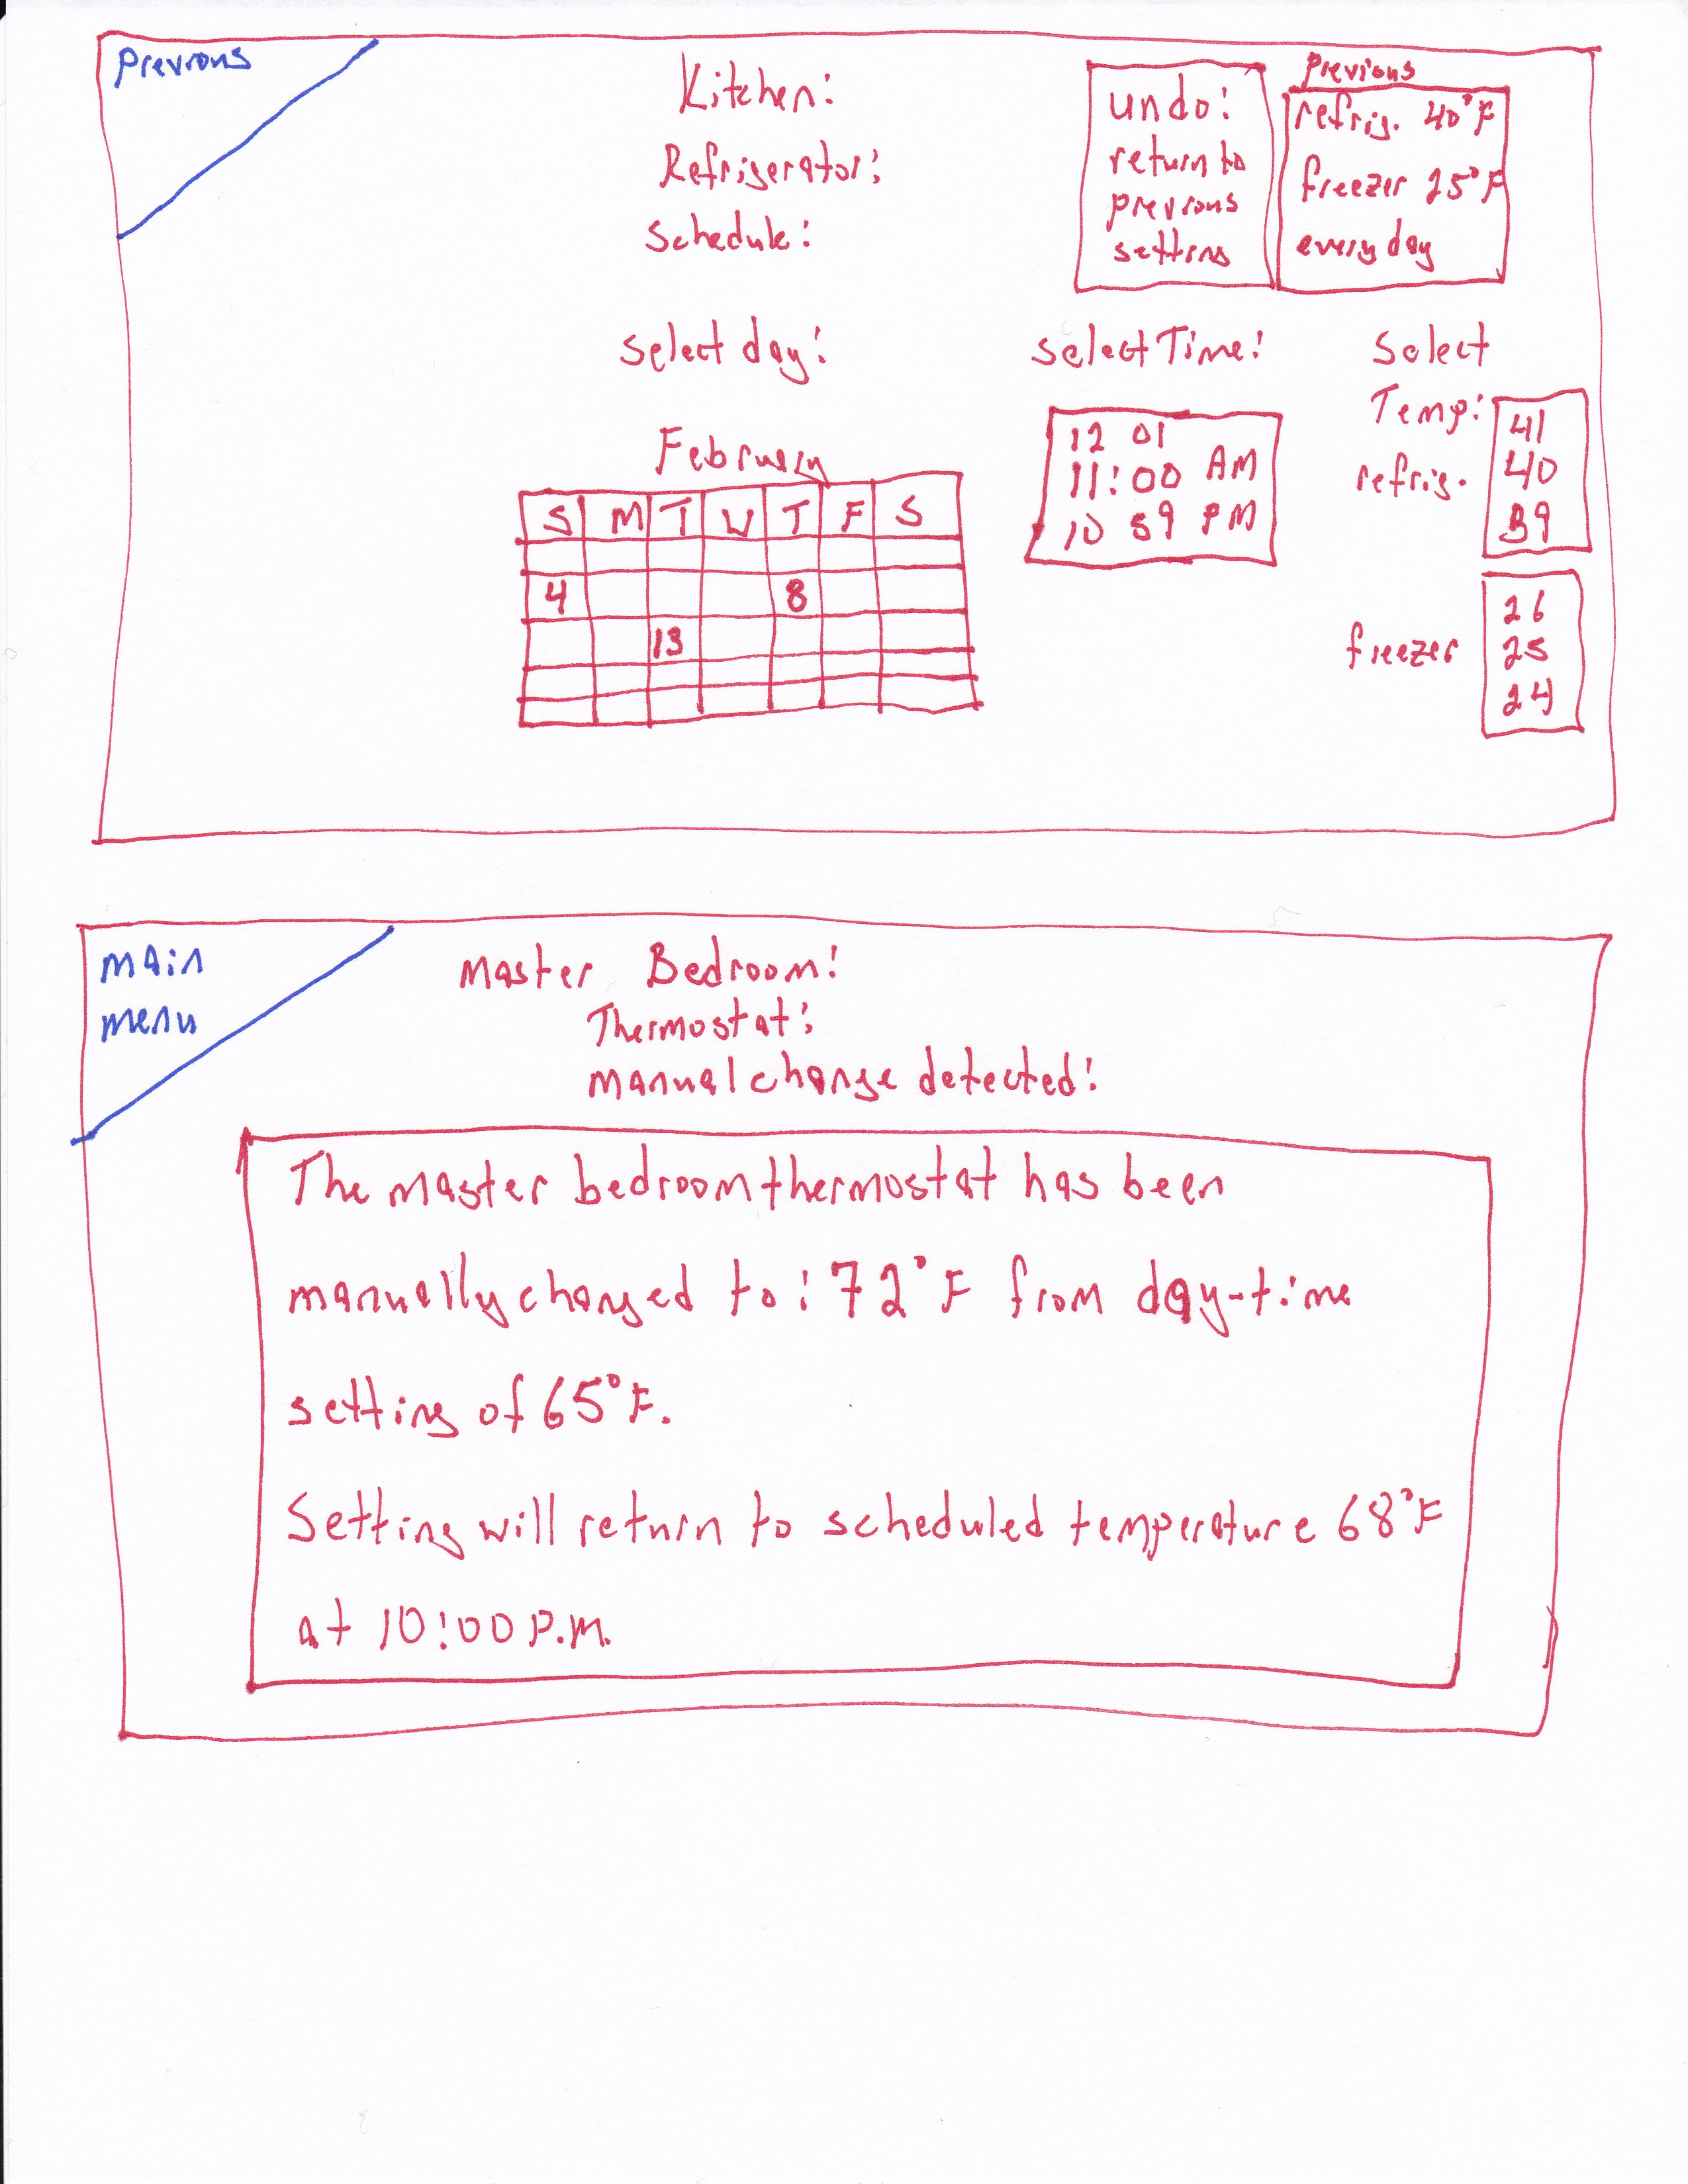 Previous
Kitchen:
Refrigerator:
Schedule:
undo:
return to
previous
setting
Previous
refrig. 40°F
freezer 25°F
every day
select day:
February
S M T W T F S
4 8
13
select Time:
12 01
11:00 AM
10 59 PM
Select
Temp:
refrig.
41
40
39
freezer
26
25
24
main
menu
Master Bedroom:
Thermostat:
manual change detected:
The master bedroom thermostat has been
manually changed to: 72°F from day-time
setting of 65°F.
Setting will return to scheduled temperature 68°F
at 10:00 P.M.